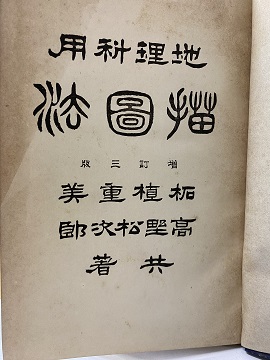 地理科用
描圖法
增訂三版
柘植重美
高野松次郎
共著